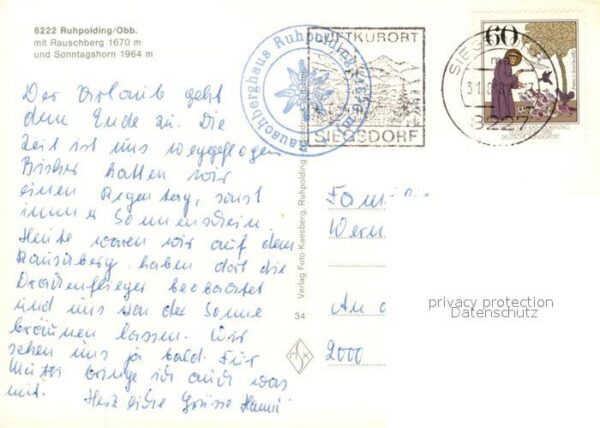 8222 Ruhpolding/Obb.
mit Rauschberg 1670 m
und Sonntagshorn 1964 m
Rauschberghaus Ruhpolding
LUFTKURORT
SIEGSDORF
SIEGSDORF
60
8227
Der Urlaub geht
dem Ende zu. Die
Zeit ist uns weggeflogen.
Bisher hatten wir
einen Regentag, sonst
immer Sonnenschein
Heute waren wir auf dem
Rauschberg, haben dort die
Drachenflieger beobachtet
und uns von der Sonne
bräunen lassen. Wir
sehen uns ja bald. Für
Mutti bringe ich auch was
mit. Herzliche Grüsse Hanni
Verlag Foto Kaesberg, Ruhpolding
34
Fam
Wern
An d
2000
privacy protection
Datenschutz